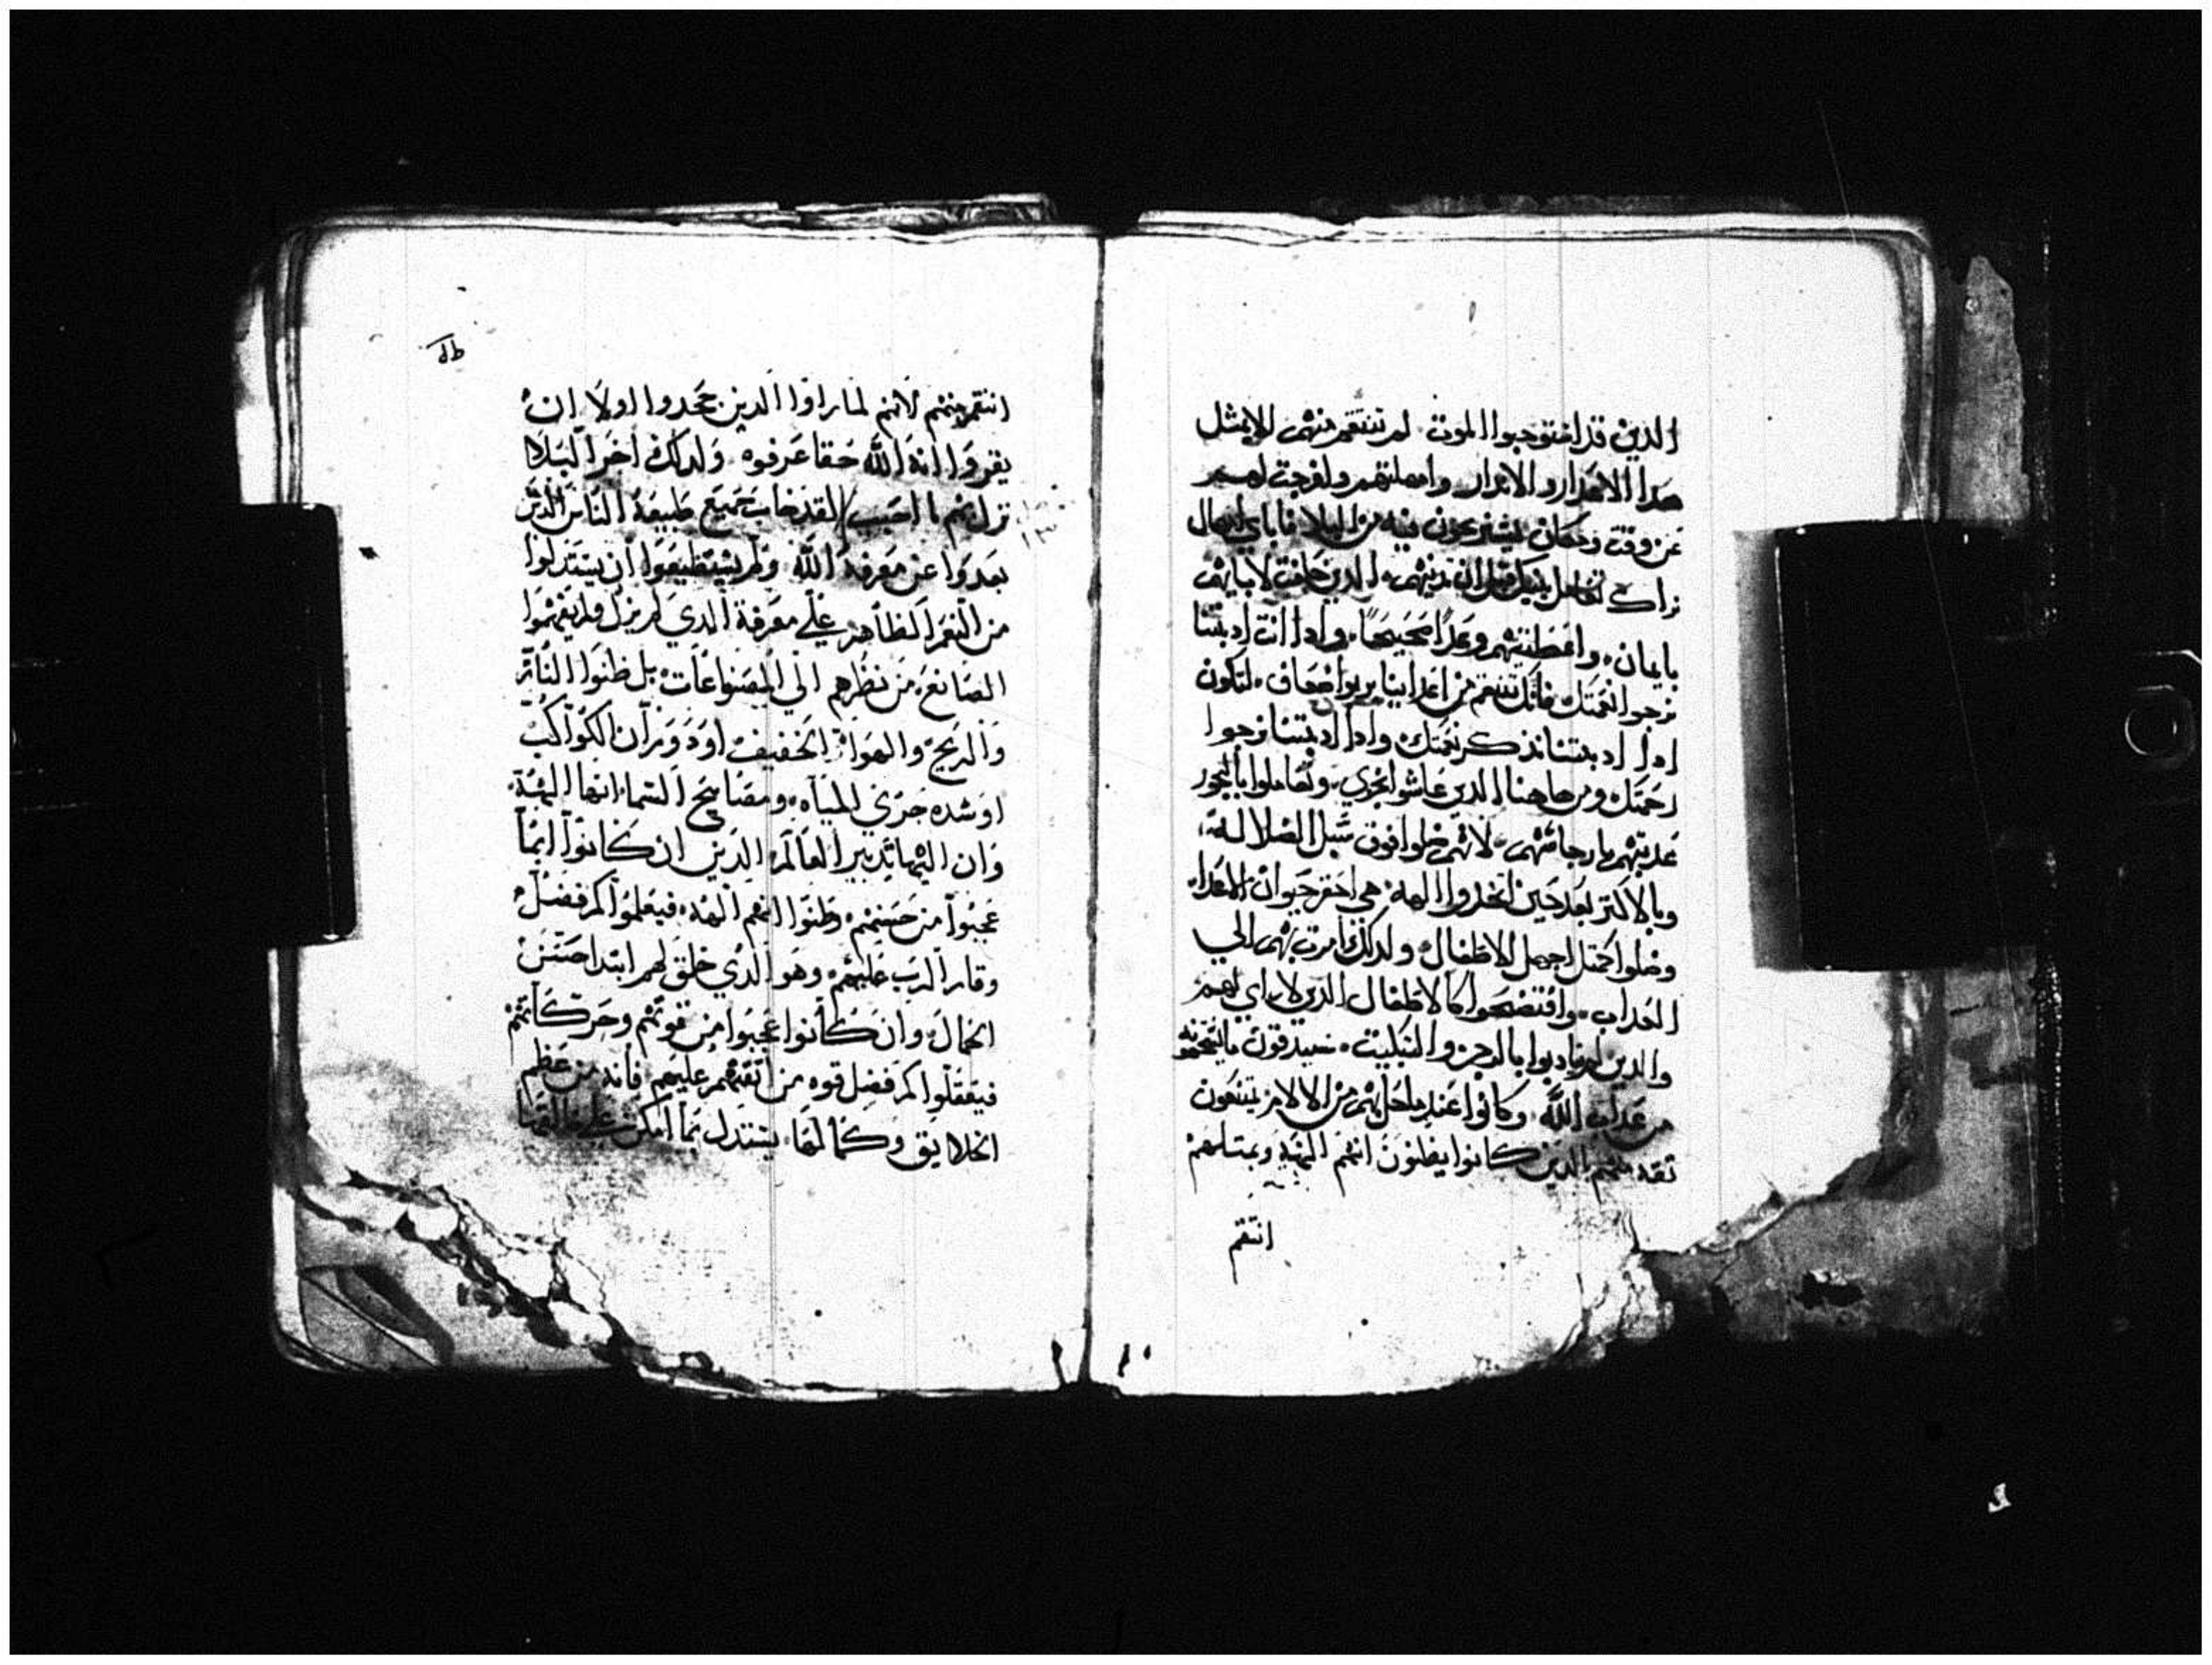 الدين قد استوجبوا الموت لم تنتقم منهم الا بمثل
هدا الاهدار والاندار وامهلتهم وافرجت لهم
عن وقت ومكان يستريحون فيه من البلا فاباي اهمال
تراك تفاحل بنيك قبل ان تدينهم الدين حلفت لابايهم
بايمان واعطيتهم وعدا صحيحا وادا انت ادبتنا
نرجوا نعمتك فانك تنتقم من اعداينا بربوا ضعاف لنكون
ادا ادبتنا نذكر نعمتك وادا ادبتنا نرجوا
رحمتك ومن هاهنا الدين عاشوا بخزي وتعاملوا بالجور
عدبتهم بارجاسهم لانهم ضلوا فوق سبل الضلالة
وبالاكتر بعد حين اتخدوا الهه هي احقر حيوان الاعدا
وضلوا كمتل اجهل الاطفال ولدلك امرت بهم الي
العداب وافتضحوا كالاطفال الدين لا راي لهم
والدين لم يادبوا بالرجز والتبكيت سيدقون ما استحقونه
من عداب الله وكانوا عند ما حل بهم من الالام يتنهون
تقد منهم الدين كانوا يظنون انهم الهه وبمتلهم
انتقم
انتقم منهم لانهم لما راوا الدين جحدوا اولا ان
يقروا انه الله حقا عرفوه ولدلك اخر البلا
نزل بهم لقد خاب جميع طبيعة الناس الدين
بعدوا عن معرفة الله ولم يستطيعوا ان يستدلوا
من النعم الظاهر علي معرفة الدي لم يزل ولم يفهموا
الصانع من نظرهم الي المصنوعات بل ظنوا النار
والريح والهوا الخفيف او دوران الكواكب
او شده جري المياه ومصابيح السما انها الهة
وان اليها تدبير العالم الدين ان كانوا انما
عجبوا من حسنهم وظنوا انهم الهه فيعلموا كم فضل
وقار الرب عليهم وهو الدي خلق لهم ابتدا حسن
الجمال وان كانوا عجبوا من قوتهم وحركاتهم
فيعقلوا كم فضل قوه من اتقنهم عليهم فانه من عظم
الخلايق وكمالها يستدل بما امكن علي